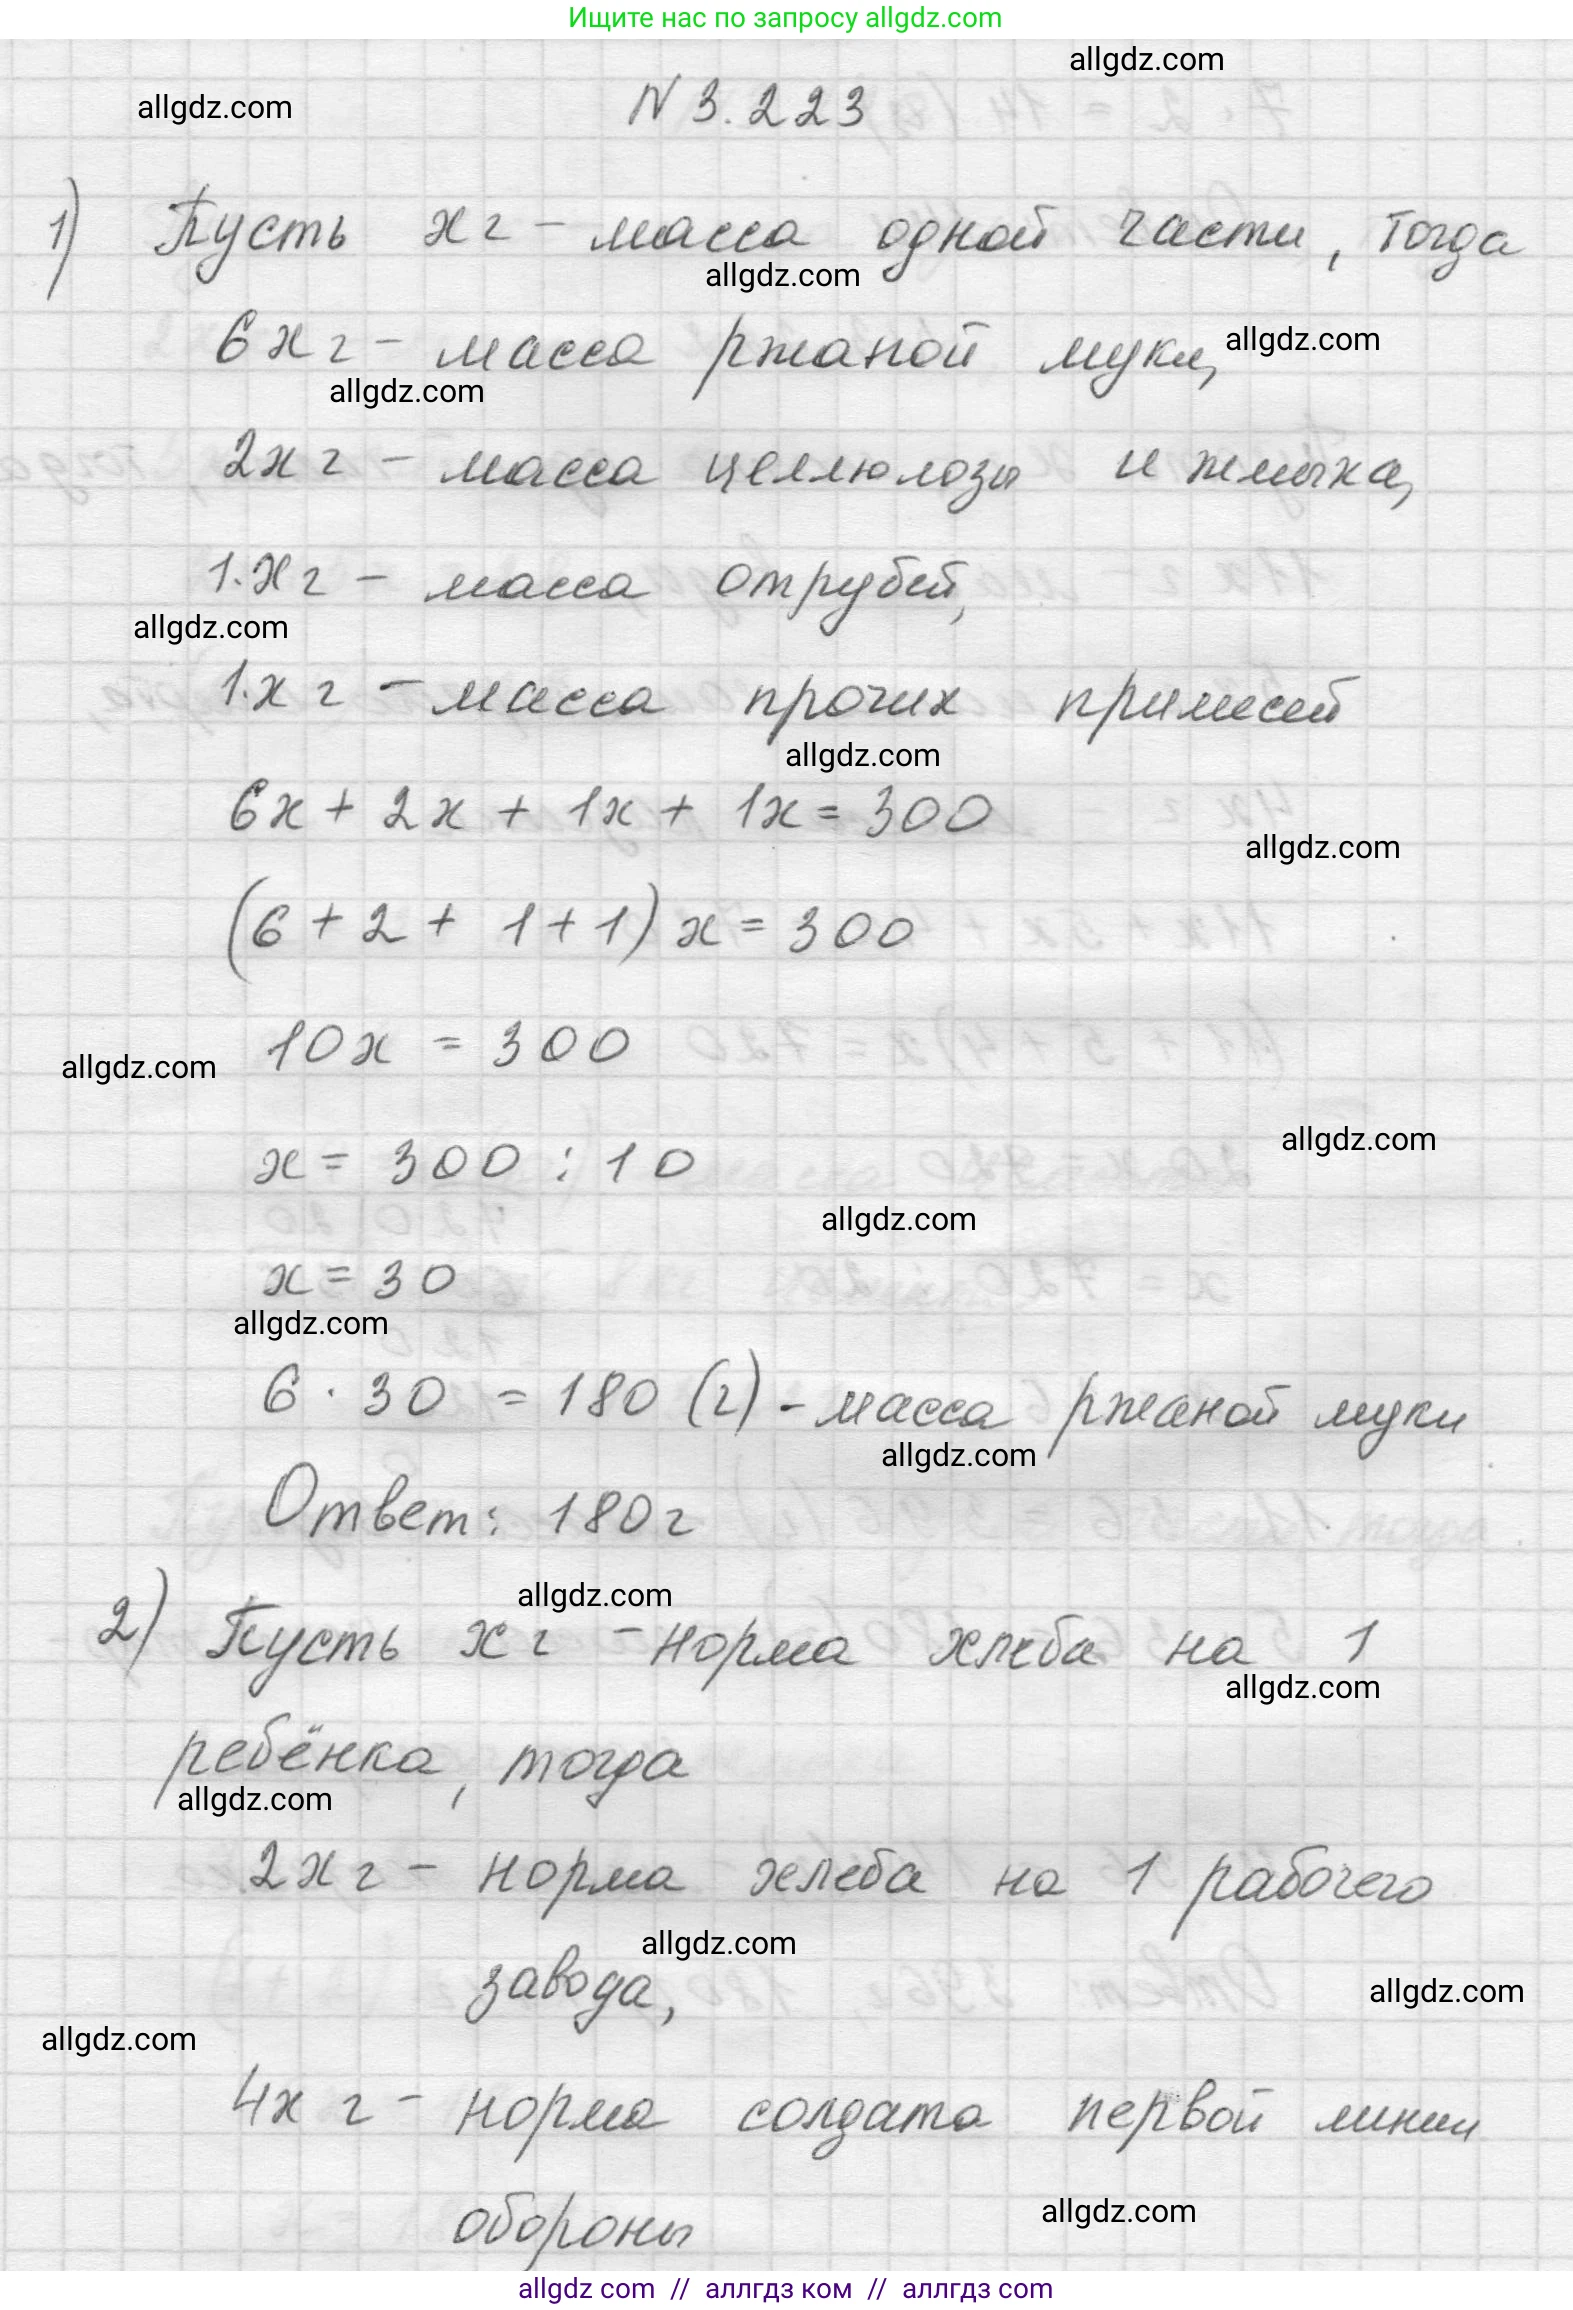 Ищите нас по запросу allgdz.com
allgdz.com
allgdz.com
N 3.223
1) Пусть х г - масса одной части, тогда
allgdz.com
6х г - масса ржаной муки,
allgdz.com
allgdz.com
2х г - масса целлюлозы и жмыха,
1·х г - масса отрубей,
allgdz.com
1·х г - масса прочих примесей
allgdz.com
6х + 2х + 1х + 1х = 300
allgdz.com
(6 + 2 + 1 + 1) х = 300
10х = 300
allgdz.com
allgdz.com
х = 300 : 10
allgdz.com
х = 30
allgdz.com
6 · 30 = 180 (г) - масса ржаной муки
allgdz.com
Ответ: 180г
allgdz.com
2) Пусть х г - норма хлеба на 1
allgdz.com
ребёнка, тогда
allgdz.com
2х г - норма хлеба на 1 рабочего
allgdz.com
завода,
allgdz.com
allgdz.com
4х г - норма солдата первой линии
allgdz.com
обороны
allgdz com // аллгдз ком // аллгдз com